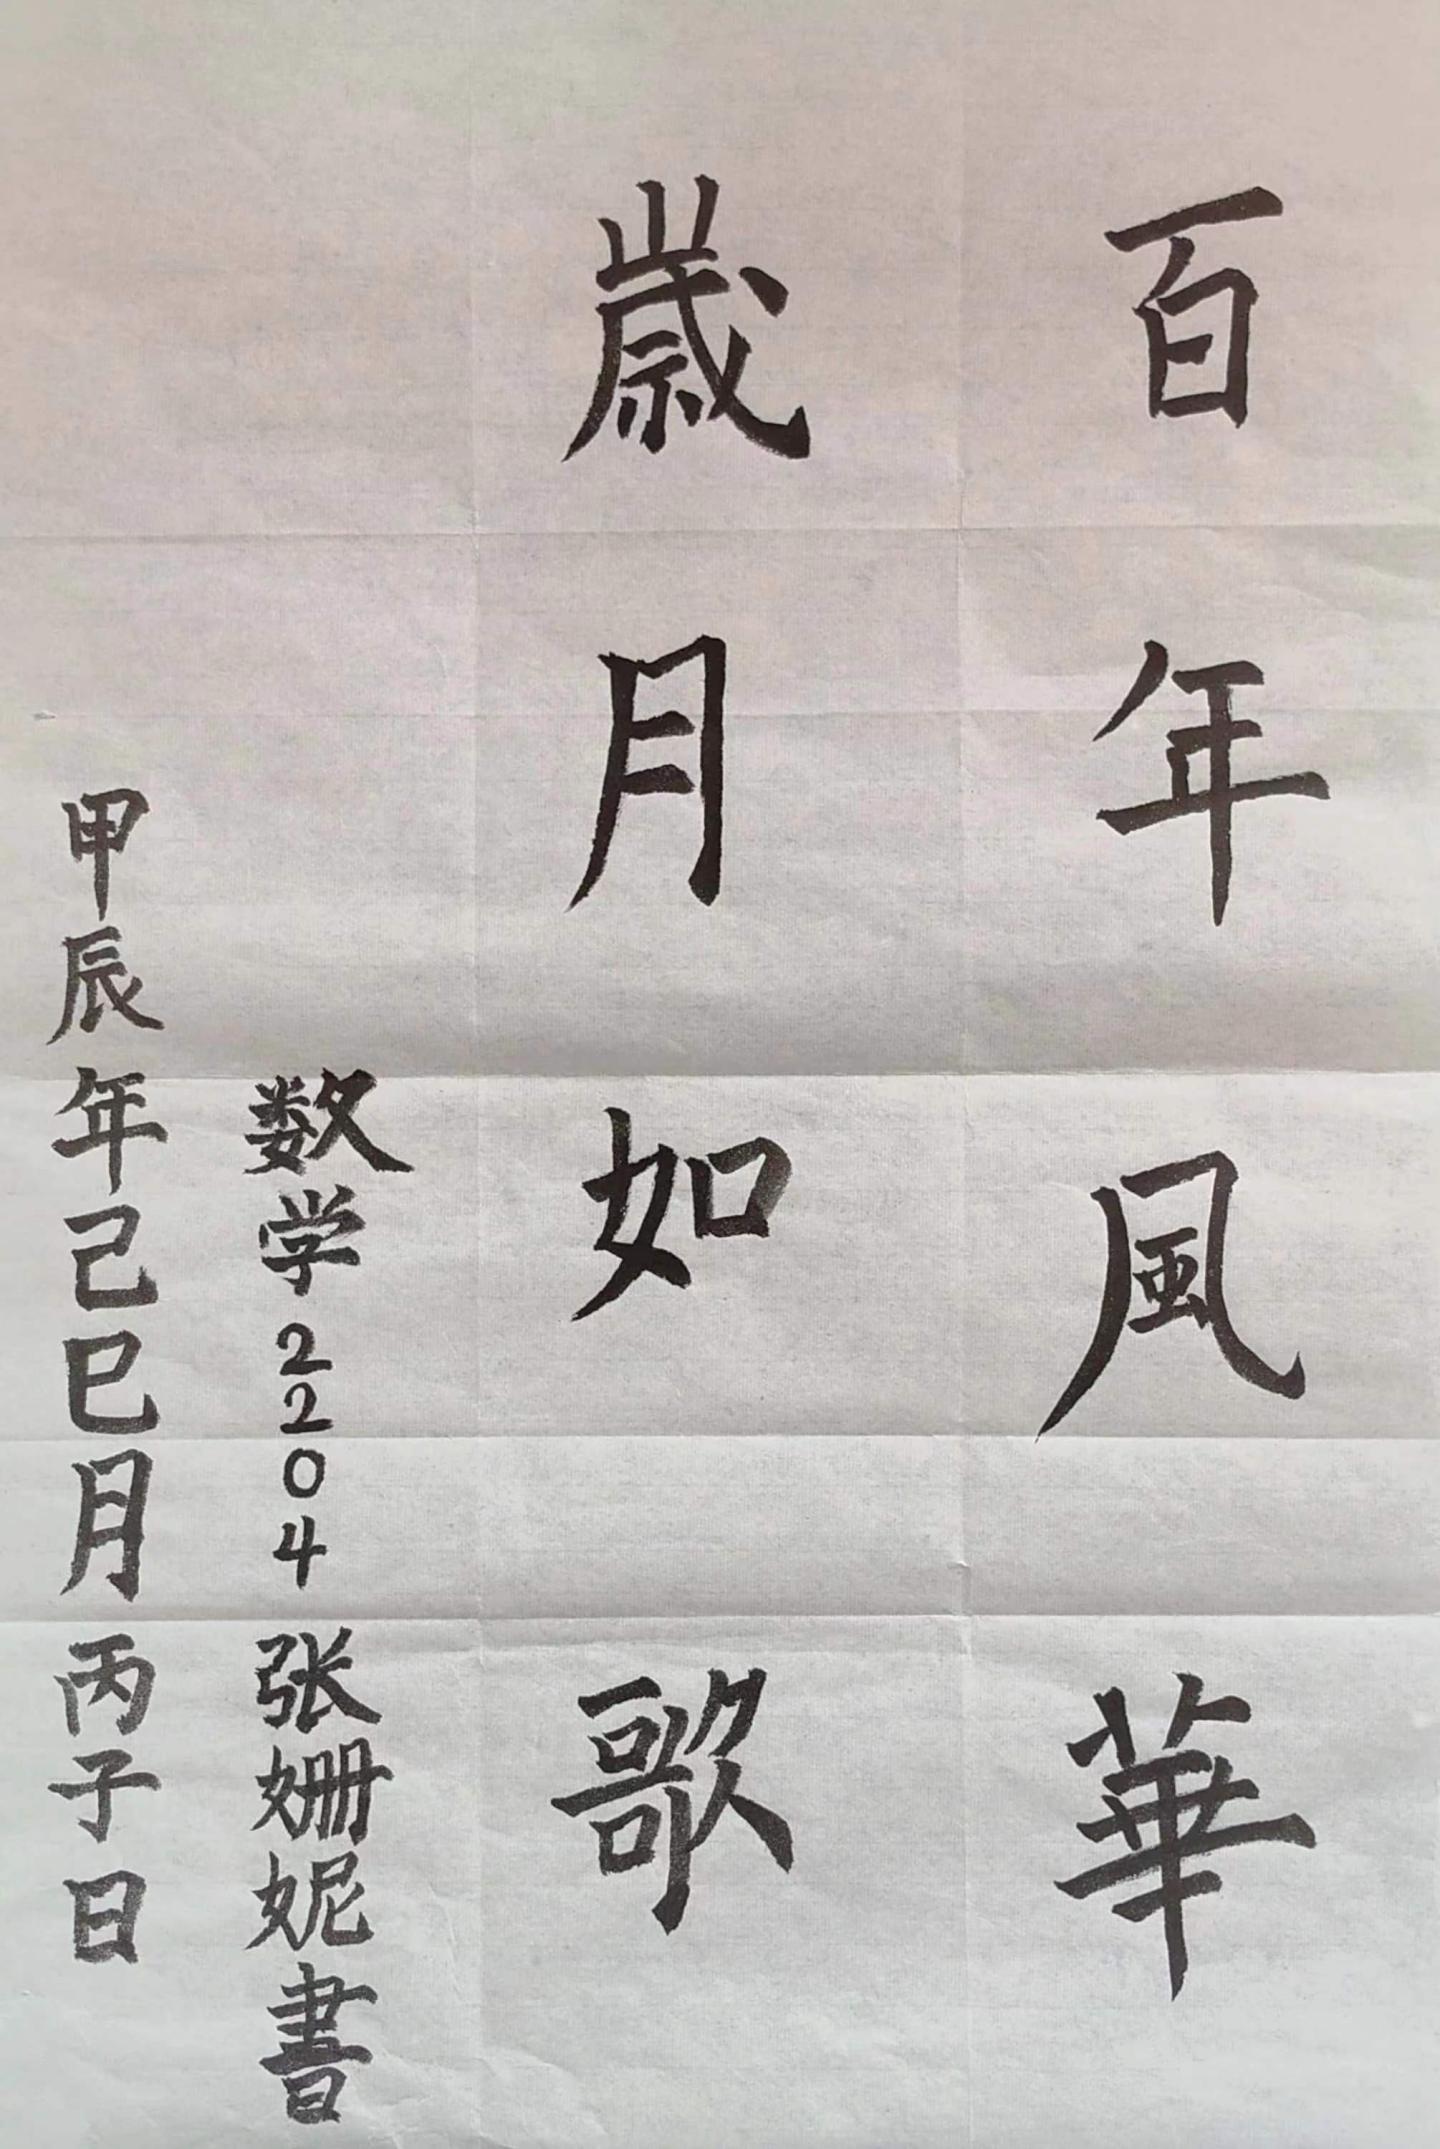 百年風華
歲月如歌
数学2204张姗妮書
甲辰年己巳月丙子日